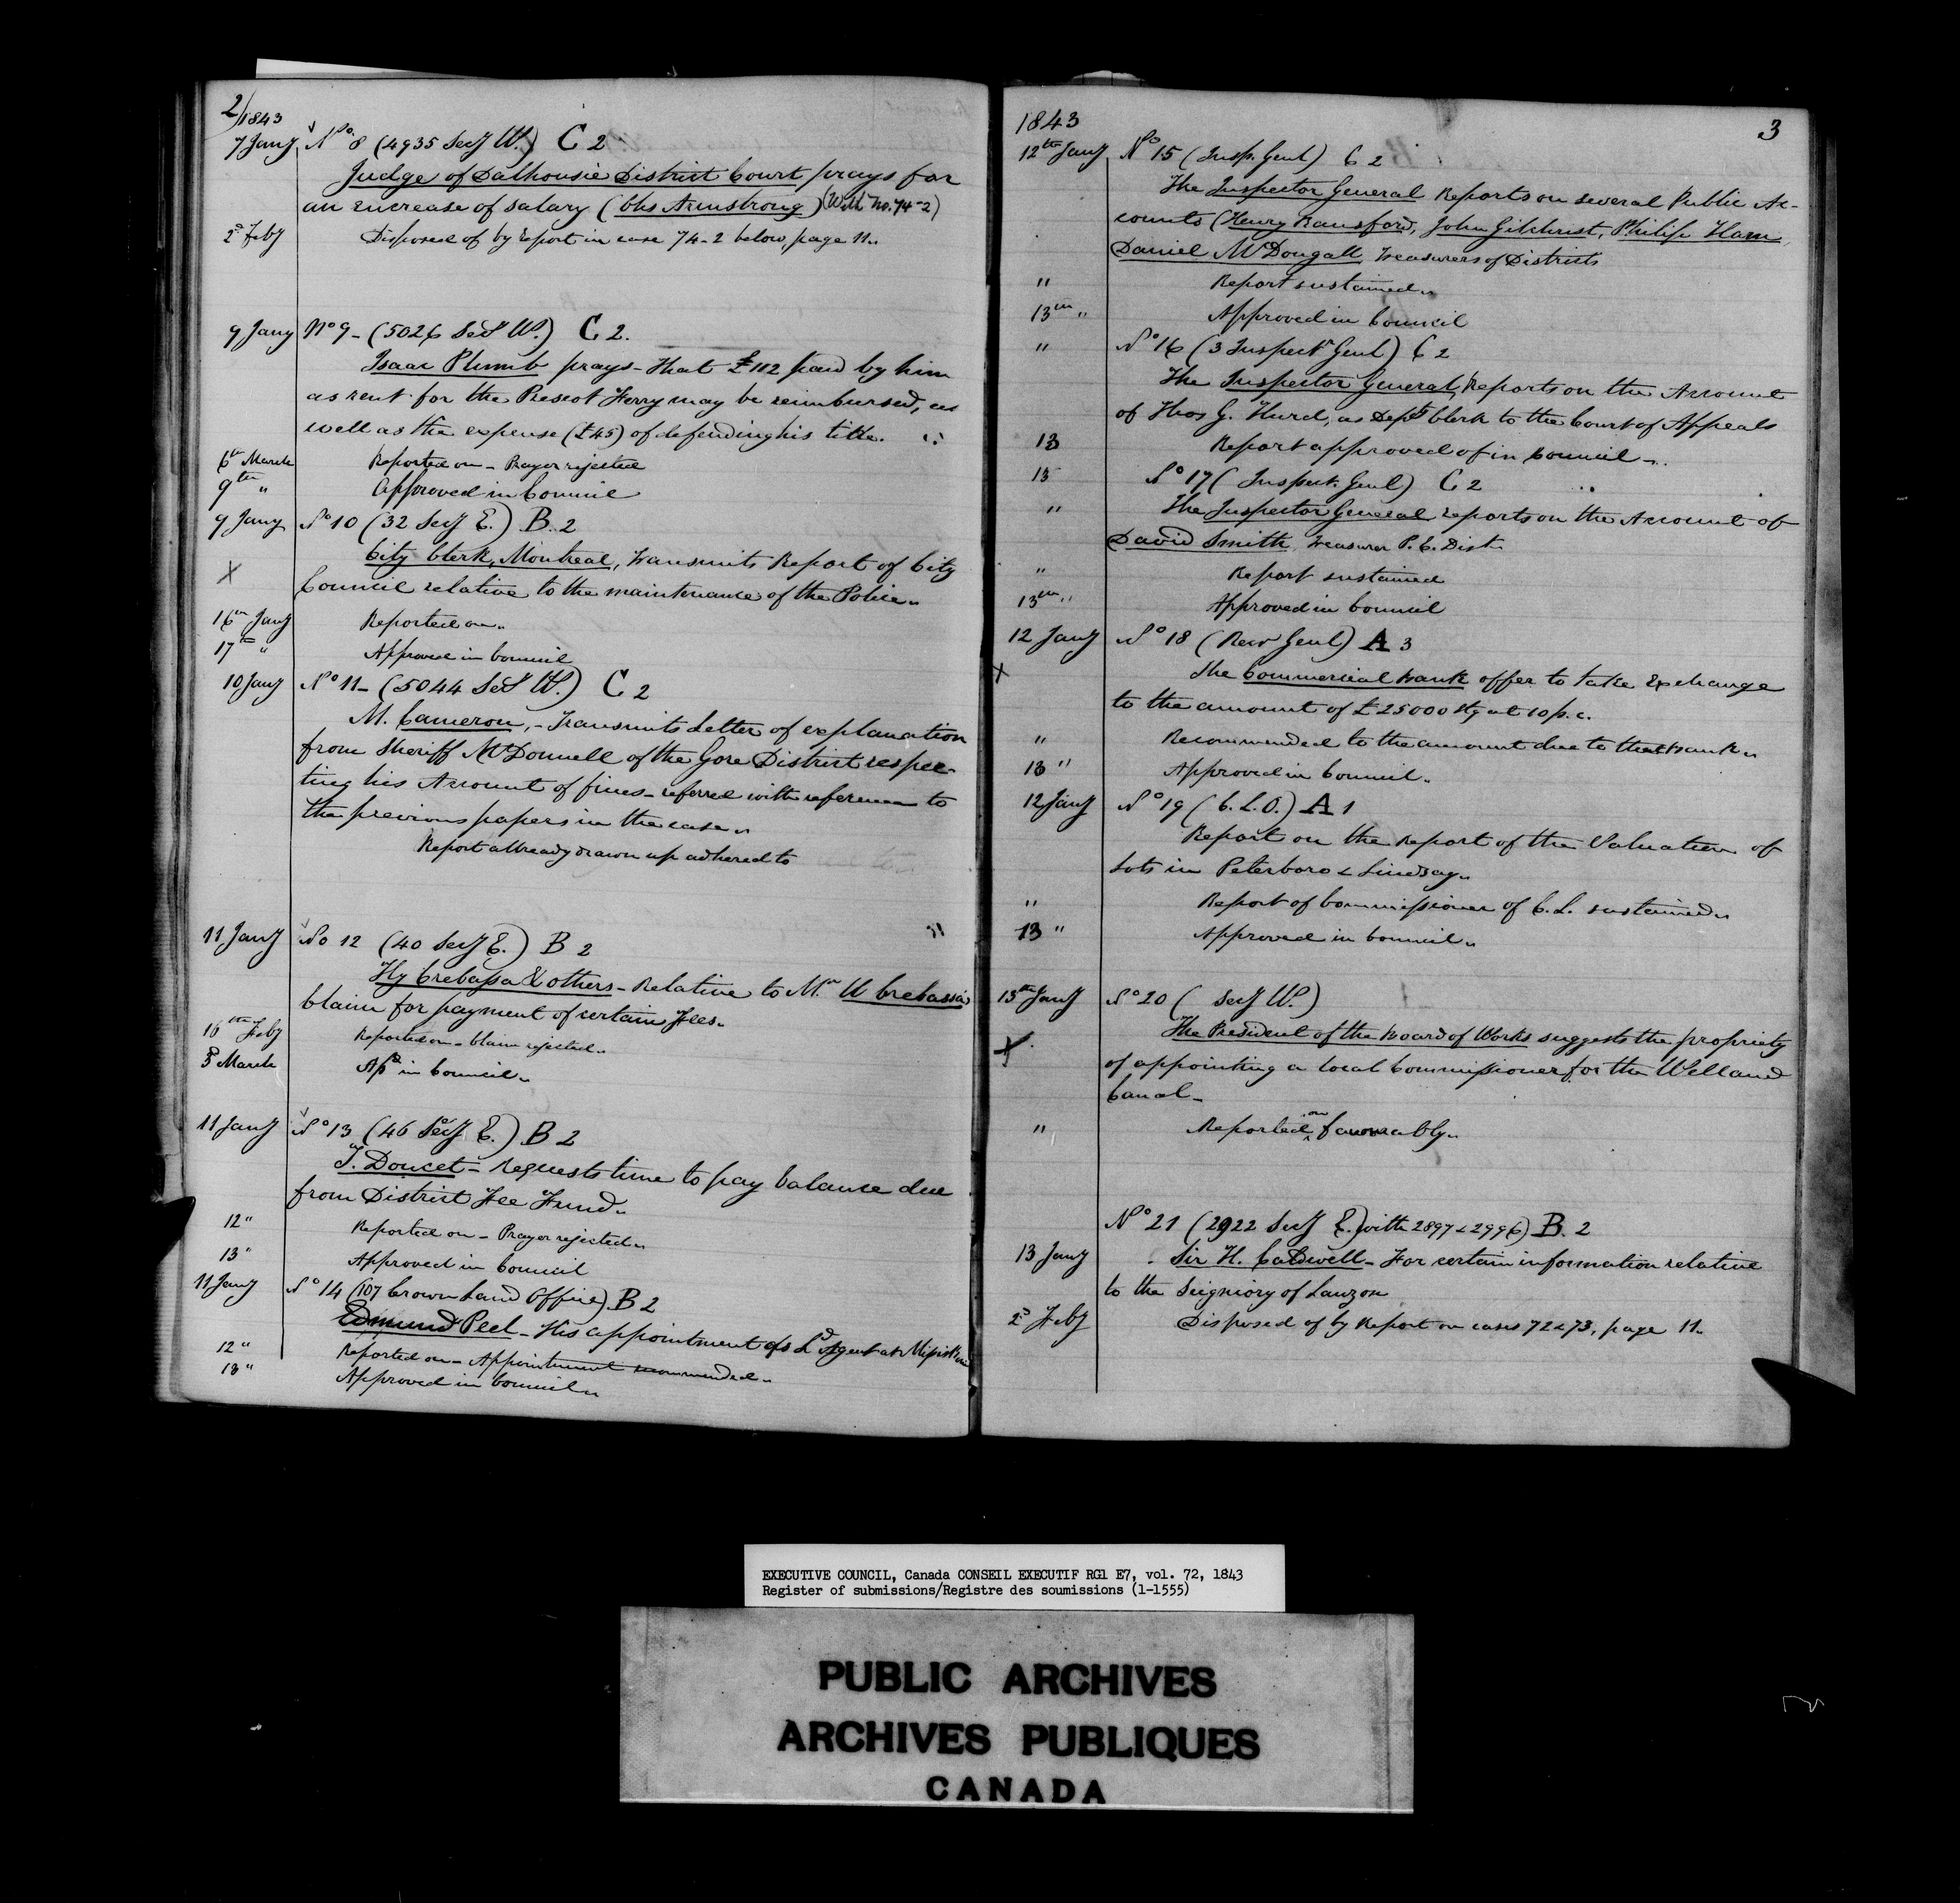 2/1843
7 Jany No 8 (4935 Secy W.) C 2
Judge of Dalhousie District Court prays for
an increase of salary (Chs Armstrong) (With No. 74-2)
2d Feby Disposed of by report in case 74-2 below, page 11.
9 Jany No 9 - (5026 Secy W.) C 2.
Isaac Plumb prays - that £112 paid by him
as rent for the Prescot Ferry may be reimbursed, as
well as the expense (£45) of defending his title.
6th March Reported on - Prayer rejected
9th " Approved in Council
9 Jany No 10 (32 Secy E.) B. 2
City Clerk, Montreal, transmits Report of City
X Council relative to the maintenance of the Police.
16th Jany Reported on.
17th " Approved in Council
10 Jany No 11 - (5044 Secy W.) C 2
M. Cameron, - Transmits Letter of explanation
from Sheriff McDonnell of the Gore District respec-
ting his Account of fines - referred with reference to
the previous papers in the case.
Report already drawn up adhered to
11 Jany No 12 (40 Secy E.) B 2
Hy Crebassa & others - Relative to Mr W Crebassa's
Claim for payment of certain Fees.
16th Feby Reported on - Claim rejected.
3d March Apd in Council.
11 Jany No 13 (46 Secy E.) B 2
T. Doucet - Requests time to pay balance due
from District Fee Fund.
12 " Reported on - Prayer rejected.
13 " Approved in Council
11 Jany No 14 (107 Crown Land Office) B 2
Edmund Peel - His appointment as Ld Agent at
12 " Reported on - Appointment recommended.
13 " Approved in Council.
1843 3
12th Jany No 15 (Insp. Genl) C 2
The Inspector General Reports on several Public Ac-
counts (Henry Ransford, John Gilchrist, Philip Ham,
Daniel McDougall, Treasurers of Districts
" Report sustained.
13th " Approved in Council
" No 16 (3 Inspectr Genl) C 2
The Inspector General, Reports on the Account
of Thos G. Hurd, as Depy Clerk to the Court of Appeals
13 Report approved of in Council.
13 No 17 (Inspect. Genl) C 2
" The Inspector General reports on the Account of
David Smith, Treasurer P. E. Dist.
" Report sustained
13th " Approved in Council
12 Jany No 18 (Recr Genl) A 3
X The Commercial Bank offer to take Exchange
to the amount of £25000 Stg at 10 p. c.
" Recommended to the amount due to that Bank.
13 " Approved in Council.
12 Jany No 19 (C. L. O.) A 1
Report on the Report of the Valuation of
Lots in Peterboro & Lindsay.
" Report of Commissioner of C. L. sustained.
13 " Approved in Council.
13th Jany No 20 ( Secy W.)
X The President of the Board of Works suggests the propriety
of appointing a local Commissioner for the Welland
Canal -
" Reported on favourably.
No 21 (2922 Secy E. with 2897 & 2996) B. 2
13 Jany Sir H. Caldwell - For certain information relative
to the Seigniory of Lauzon
2d Feby Disposed of by Report on cases 72 & 73, page 11.
EXECUTIVE COUNCIL, Canada CONSEIL EXECUTIF RG1 E7, vol. 72, 1843
Register of submissions/Registre des soumissions (1-1555)
PUBLIC ARCHIVES
ARCHIVES PUBLIQUES
CANADA